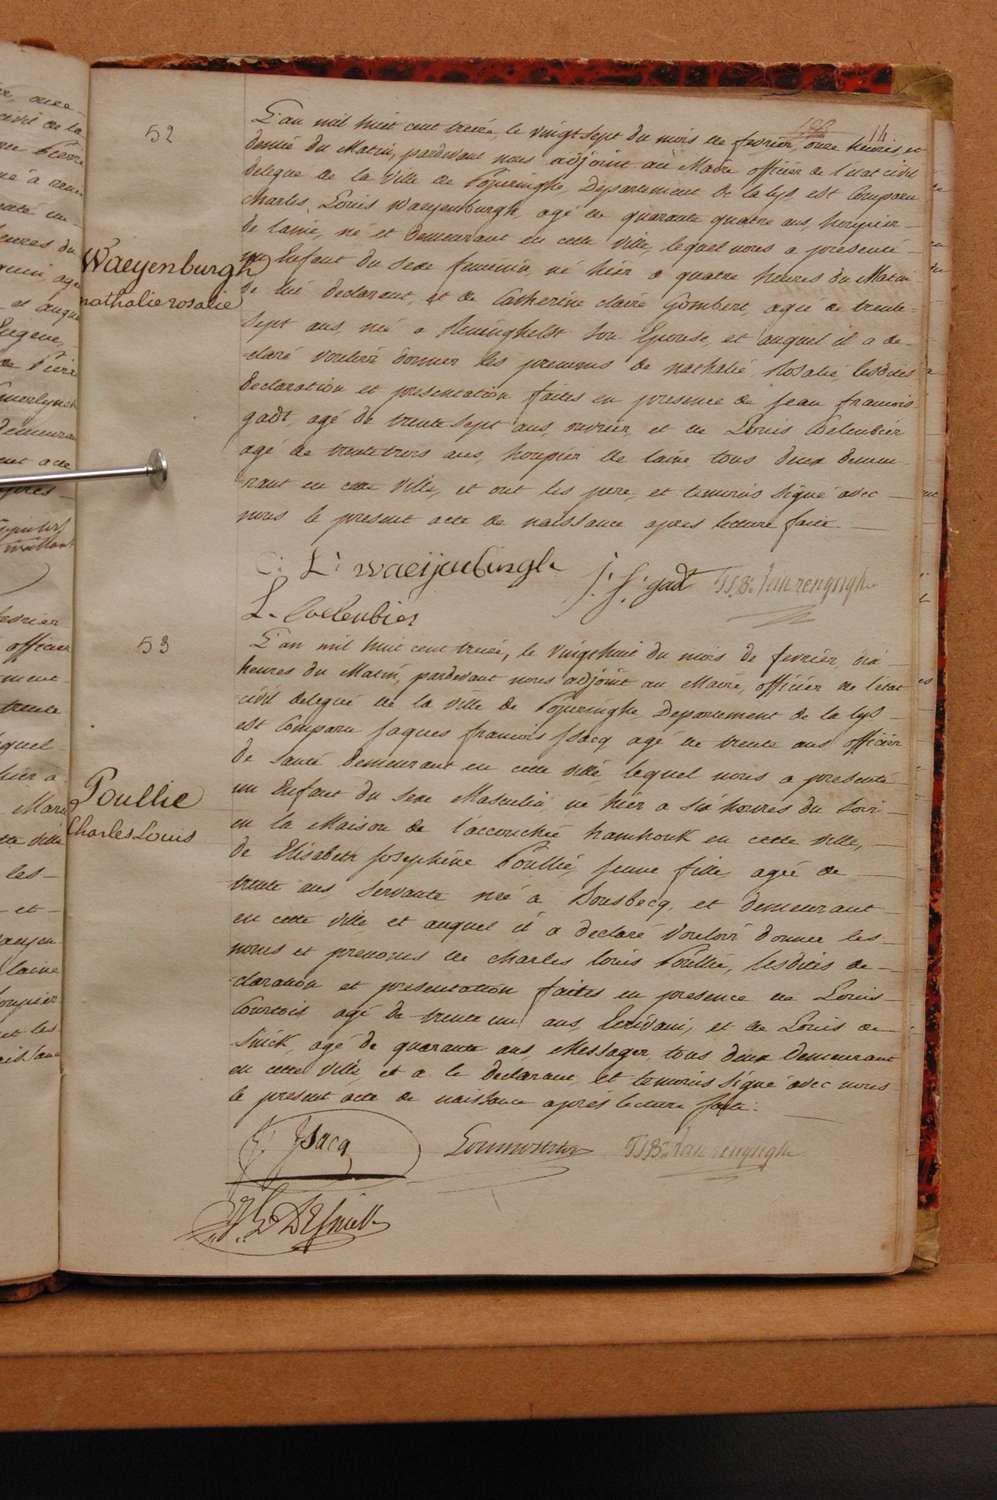 14
52
L'an mil huit cent treize, le vingt sept du mois de fevrier, onze heures et
demie du Matin, pardevant nous adjoint au Maire officier de l'etat civil
delegué de la Ville de Poperinghe, Departement de la Lys est Comparu
Charles Louis Waeyenburgh, agé de quarante quatre ans, houpier
de laine, né et demeurant en cette Ville, lequel nous a presenté
Waeyenburgh
un Enfant du Sexe feminin, né hier a quatre heures du Matin
nathalie rosalie
de lui declarant, et de Catherine claire Gombert, agée de trente-
Sept ans, née a Reninghelst Son Epouse, et auquel il a de-
claré Vouloir donner les prenoms de nathalie Rosalie, lesdites
declaration et presentation faites en presence de jean francois
gadt, agé de trente sept ans, ouvrier, et de Louis Coelenbier
agé de trente trois ans, houpier de laine, tous deux demeu-
rant en cette Ville, et ont les pere, et temoins signé avec
nous le present acte de naissance après lecture faite
C: L: waeijenbúrgh J: f: gadt
L. Coelenbier
53
L'an mil huit cent treize, le vingt huit du mois de fevrier, dix
heures du Matin, pardevant nous adjoint au Maire, officier de l'état
civil delegué de la Ville de Poperinghe Departement de la Lys
est Comparu Jaques francois Isacq agé de trente ans officier
de santé demeurant en cette Ville lequel nous a presenté
Poullie
un Enfant du Sexe Masculin né hier a six heures du soir
Charles Louis
en la Maison de l'accouchée hamhouk en cette Ville,
de Elisabeth Josephine Poullie, jeune fille agée de
trente ans Servante née à Bousbecq, et demeurant
en cette Ville et auquel il a declaré Vouloir donner les
noms et prenoms de Charles Louis Poullie, lesdites de-
claration et presentation faites en presence de Louis
agé de trente un ans Ecrivain, et de Louis de
Snick, agé de quarante ans, Messager, tous deux Demeurant
en cette Ville, et a le declarant, et temoins signé avec nous
le present acte de naissance apres lecture faite.
J: Isacq